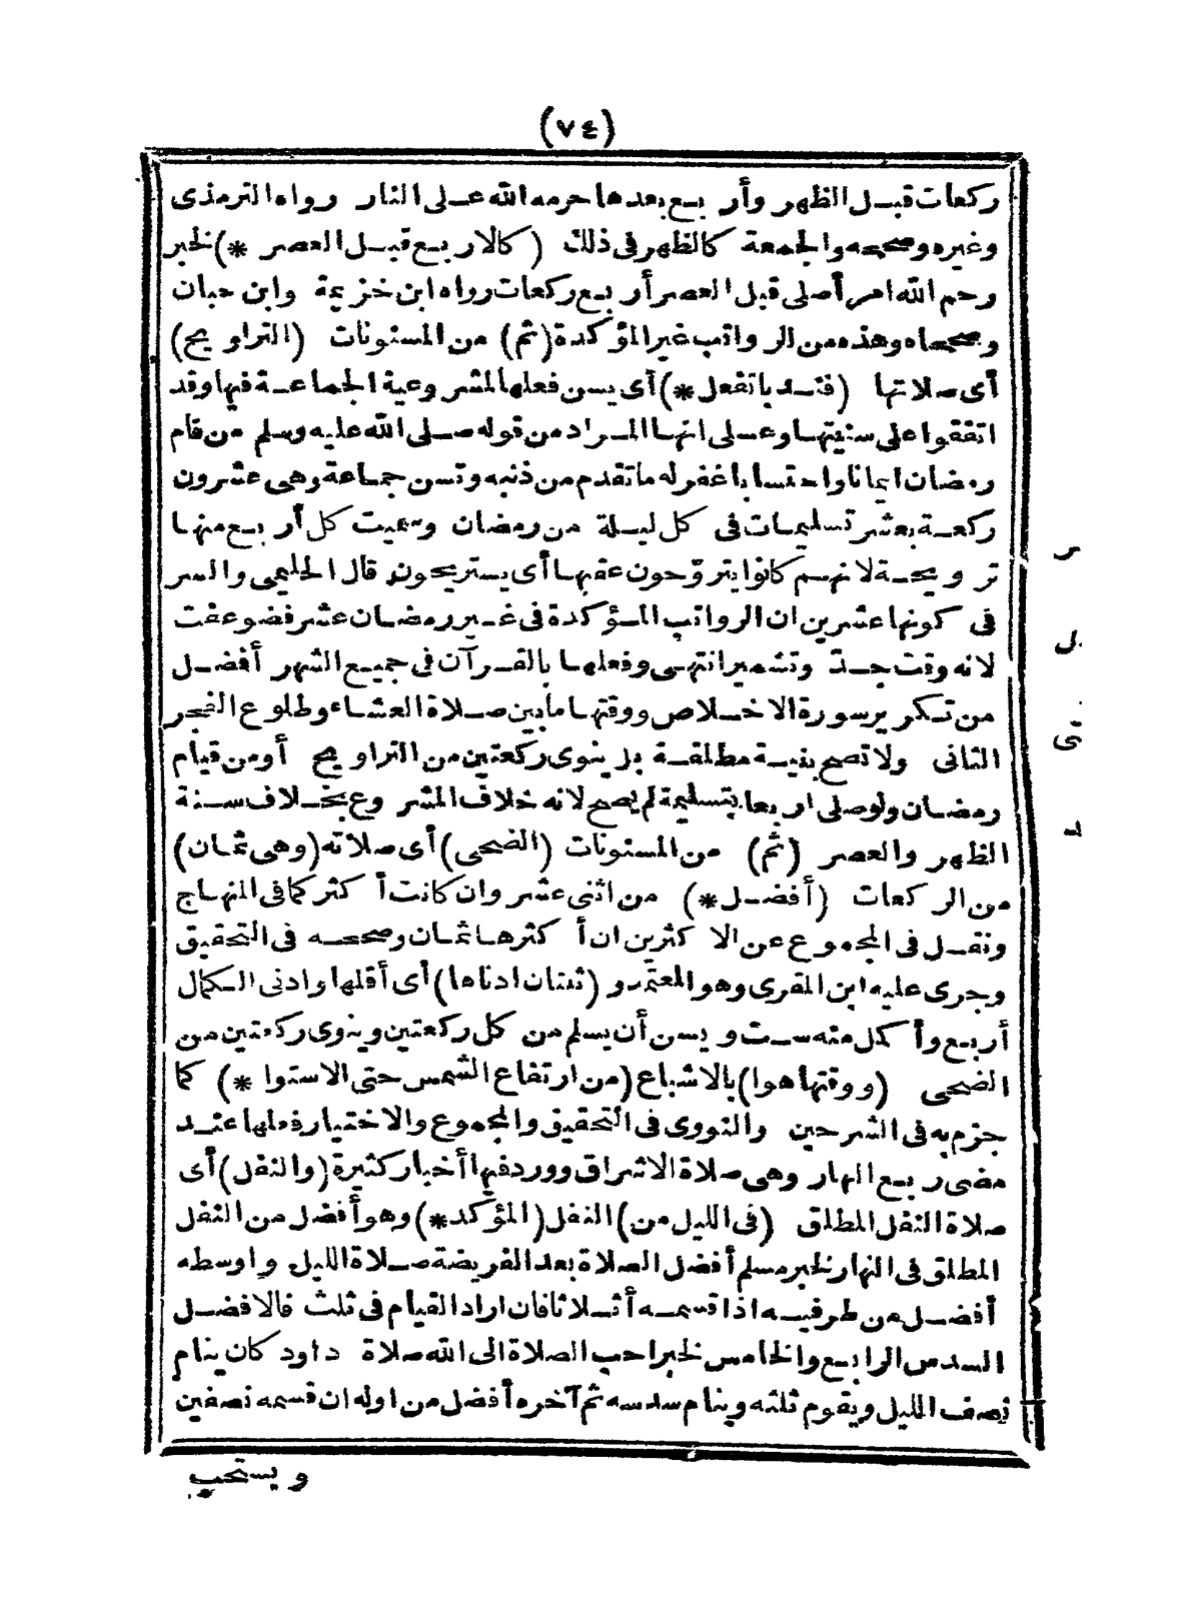 (٧٤)
ركعات قبل الظهر وأربع بعدها حرمه الله على النار رواه الترمذى
وغيره وصححه والجمعة كالظهر فى ذلك (كالاربع قبل العصر *) لخبر
رحم الله امرأ صلى قبل العصر أربع ركعات رواه ابن خزيمة وابن حبان
وصححاه وهذه من الرواتب غير المؤكدة (ثم) من المسنونات (التراويح)
أى صلاتها (فندبا تفعل *) أى يسن فعلها المشروعية الجماعة فيها وقد
اتفقوا على سنيتها وعلى انها المراد من قوله صلى الله عليه وسلم من قام
رمضان ايمانا واحتسابا غفر له ما تقدم من ذنبه وتسن جماعة وهى عشرون
ركعة بعشر تسليمات فى كل ليلة من رمضان وسميت كل أربع منها
ترويحة لانهم كانوا يتروّحون عقبها أى يستريحون قال الحليمى والسر
فى كونها عشرين ان الرواتب المؤكدة فى غير رمضان عشر فضوعفت
لانه وقت جدّ وتشمير انتهى وفعلها بالقرآن فى جميع الشهر أفضل
من تكرير سورة الاخلاص ووقتها ما بين صلاة العشاء وطلوع الفجر
الثانى ولا تصح بنية مطلقة بل ينوى ركعتين من التراويح أو من قيام
رمضان ولو صلى اربعا بتسليمة لم يصح لانه خلاف المشروع بخلاف سنة
الظهر والعصر (ثم) من المسنونات (الضحى) أى صلاته (وهى ثمان)
من الركعات (أفضل *) من اثنى عشر وان كانت أكثر كما فى المنهاج
ونقل فى المجموع عن الاكثرين ان أكثرها ثمان وصححه فى التحقيق
وجرى عليه ابن المقرى وهو المعتمد و (ثنتان ادناها) أى أقلها وادنى الكمال
أربع وأكمل منه ست ويسن أن يسلم من كل ركعتين وينوى ركعتين من
الضحى (ووقتها هوا) بالاشباع (من ارتفاع الشمس حتى الاستوا *) كما
جزم به فى الشرحين والنووى فى التحقيق والمجموع والاختيار فعلها عند
مضى ربع النهار وهى صلاة الاشراق وورد فيها أخبار كثيرة (والنفل) أى
صلاة النفل المطلق (فى الليل من) النفل (المؤكد *) وهو أفضل من النفل
المطلق فى النهار لخبر مسلم أفضل الصلاة بعد الفريضة صلاة الليل واوسطه
أفضل من طرفيه اذا قسمه أثلاثا فان اراد القيام فى ثلث فالافضل
السدس الرابع والخامس لخبر احب الصلاة الى الله صلاة داود كان ينام
نصف الليل ويقوم ثلثه وينام سدسه ثم آخره أفضل من اوله ان قسمه نصفين
ويستحب